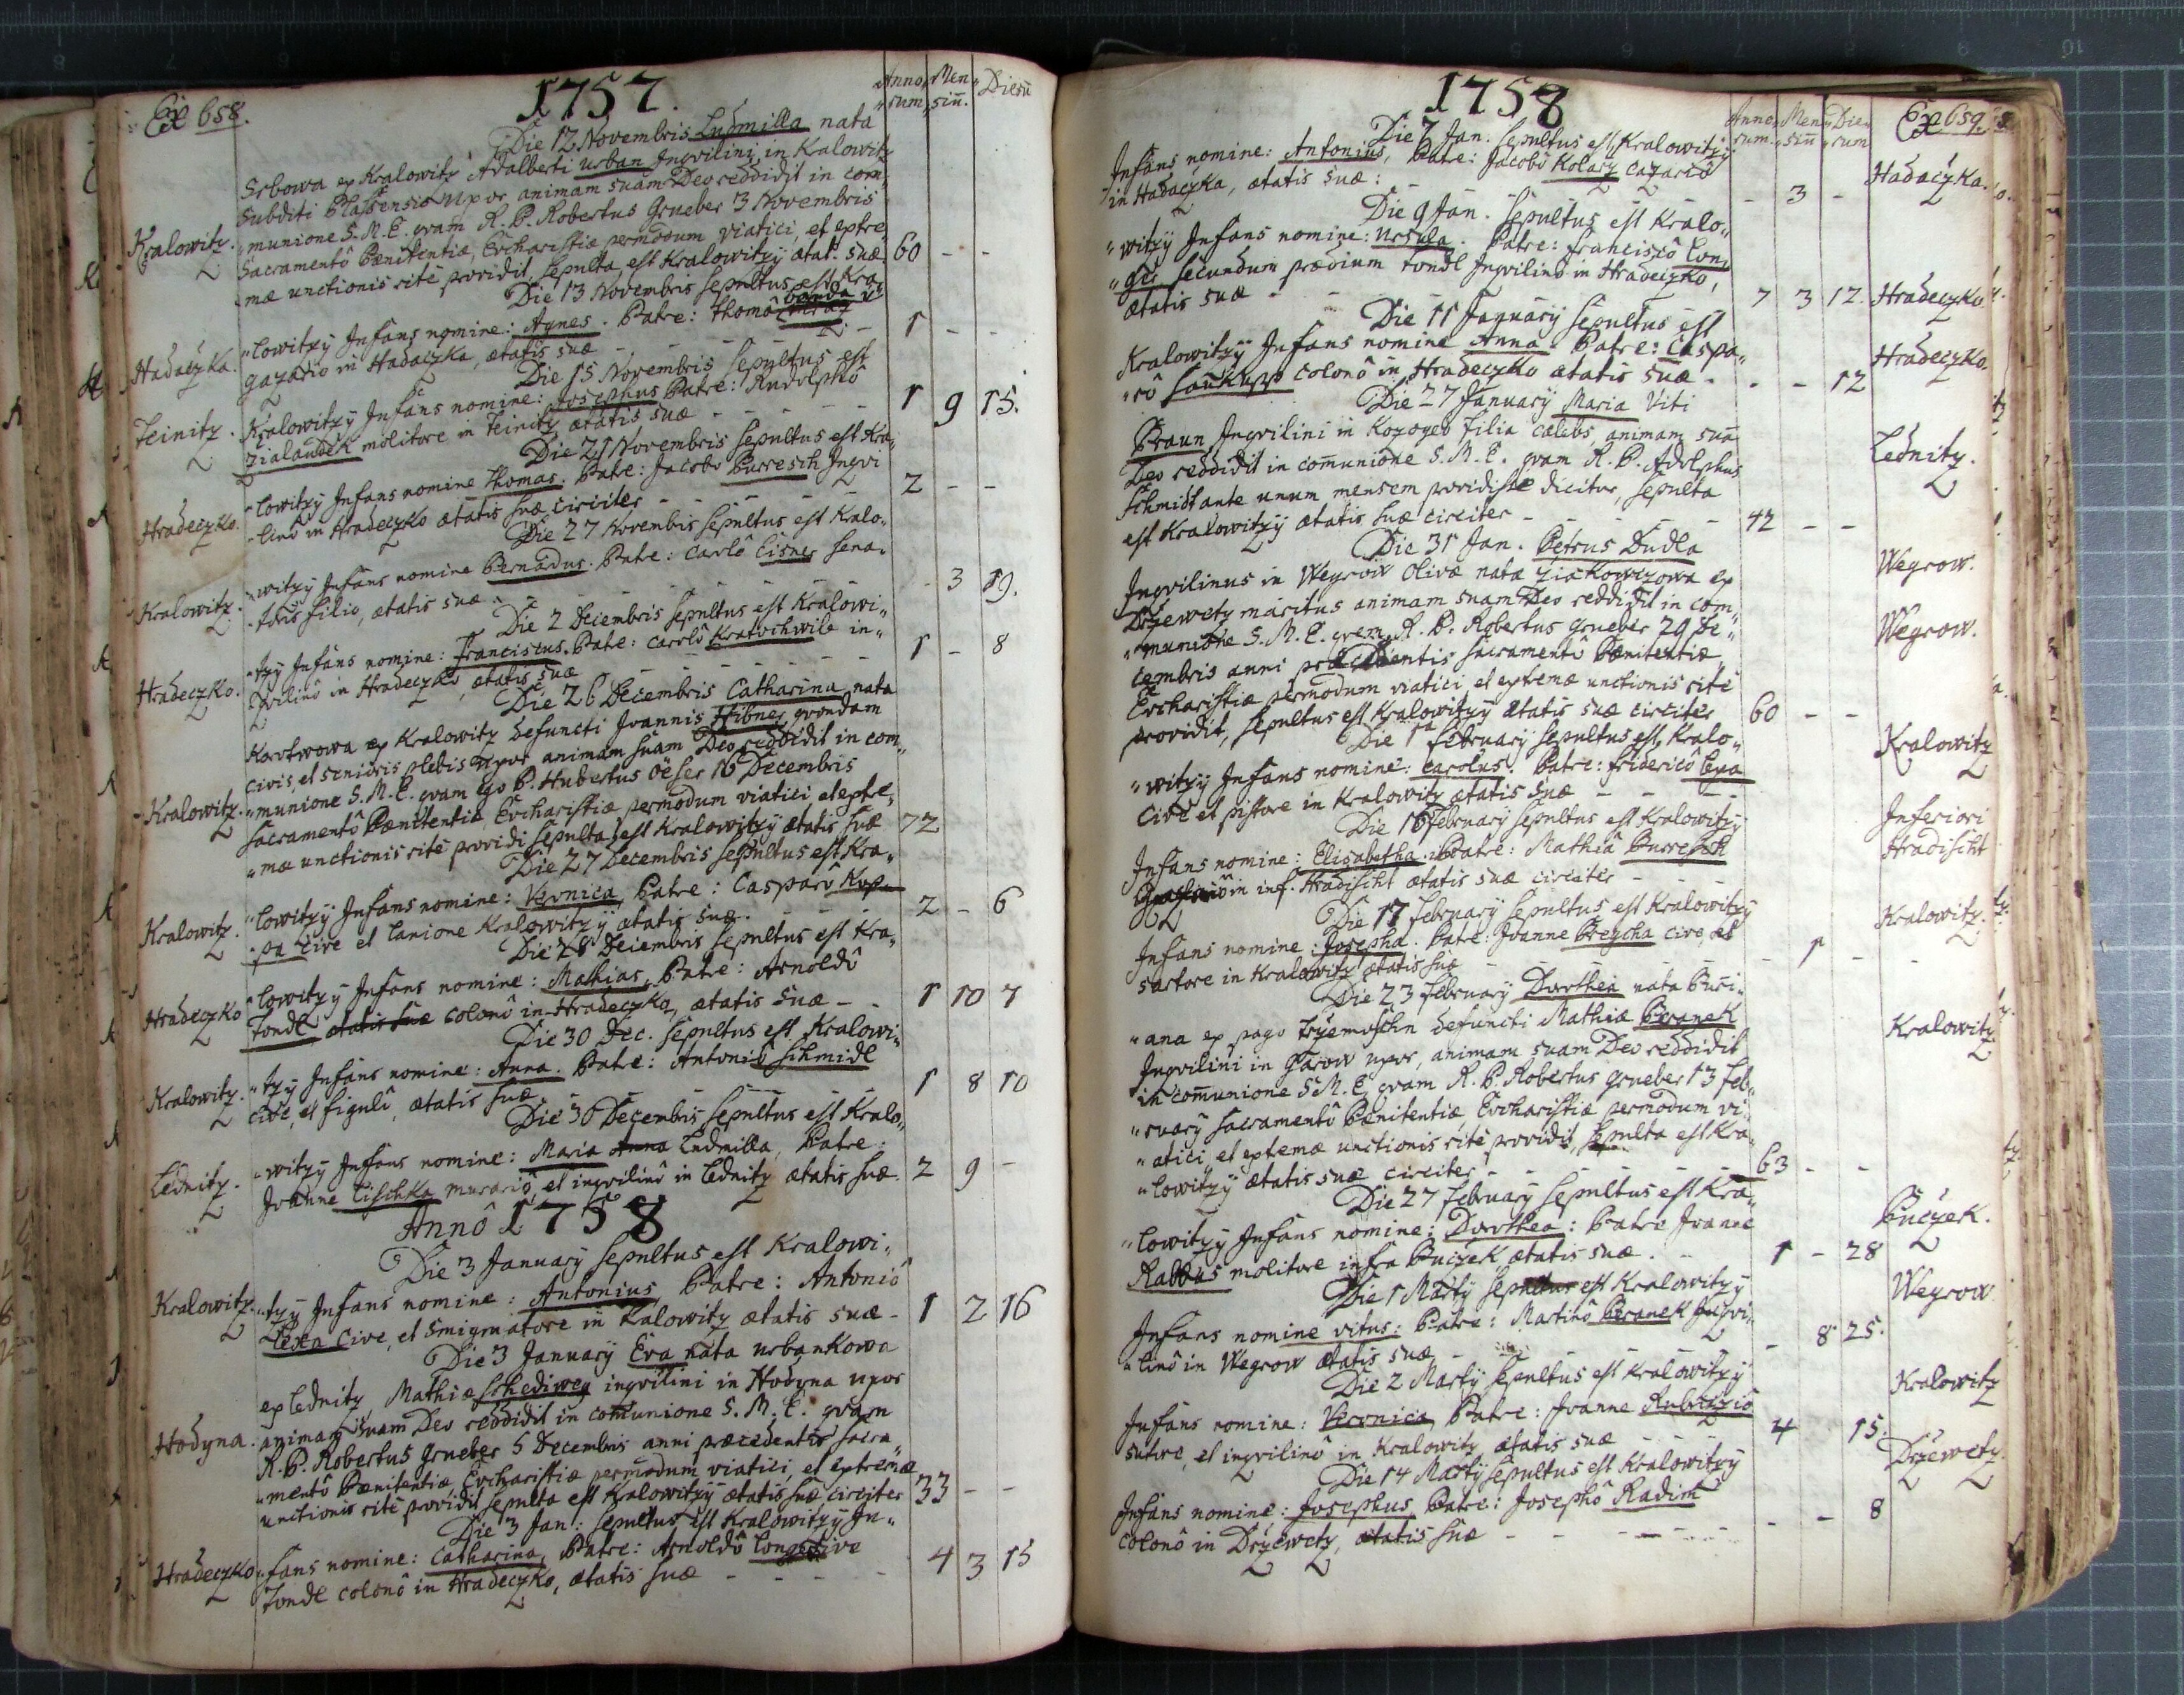 Ex 658.
1757.
Anno„rum „Men„siū. „Dierū
Die 12 Novembris Ludmilla nata
Srbowa ex Kralowitz Adalberti urban Inqvilini in Kalowitz
Subditi Plassensis Uxor animam suam Deo reddidit in com„
Kralowitz. „munione S. M. E. qvam R. P. Robertus Grueber 3 Novembris
Sacramentô Pænitentiæ, Evcharistiæ permodum viatici, et extre„
„mæ unctionis ritè providit, sepulta est Kralowitzy ætat. suæ. 60 - -
Die 13 Novembris sepultus est Kra„
„lowitzy Infans nomine: Agnes. Patre: Thomâ
Hadaczka. gazario in Hadaczka, ætatis suæ - 1 - -
Die 15 Novembris sepultus est
Teinitz. Kralowitzy Infans nomine: Josephus Patre: Rudolphô
Zialaudek molitore in Teinitz ætatis suæ - - - 1 9 15.
Die 21 Novembris sepultus est Kra„
„lowitzy Infans nomine Thomas. Patre: Jacobo Burresch Inqvi
Hradeczko. „linô in Hradeczko ætatis suæ circiter - - - 2 - -
Die 27 Novembris sepultus est Kralo„
„witzy Infans nomine Bernadus. Patre: Carlô Cisner sena„
Kralowitz. „toris filio, ætatis suæ - - - 3 19.
Die 2 Decembris sepultus est Kralowi„
„tzy Infans nomine: Franciscus. Patre: Carolô Kratochwile in„
Hradeczko. qvilinô in Hradeczko, ætatis suæ - - - 1 - 8
Die 26 Decembris Catharina nata
ex Kralowitz defuncti Joannis Hibner qvondam
civis, et senioris plebis uxor animam suam Deo reddidit in com„
Kralowitz. „munione S. M. E. qvam ego P. Hubertus Öeser 16 Decembris
sacramentô Pænitentiæ, Evcharistiæ permodum viatici et extre„
„mæ unctionis ritè providi sepulta est Kralowitzy ætatis suæ 72
Die 27 Decembris sepultus est Kra„
„lowitzy Infans nomine: Vernica, Patre: Casparô Kop„
Kralowitz. „pa cive et lanione Kralowitzy ætatis suæ. - - 2 - 6
Die 28 Decembris sepultus est Kra„
„lowitzy Infans nomine: Mathias, Patre: Arnoldô
Hradeczko Tondl ætatis suæ colonô in Hradeczko, ætatis suæ - - 1 10 7
Die 30 Dec. sepultus est Kralowi„
„tzy Infans nomine: Anna. Patre: Antoniô Schmidl
Kralowitz. cive, et figulô, ætatis suæ - - 1 8 10
Die 30 Decembris sepultus est Kralo„
„witzy Infans nomine: Maria Anna Ludmilla, Patre:
Lednitz. Joanne Tischka murariô, et inqvilinô in Lednitz ætatis suæ. 2 9 -
Annô 1758
Die 3 January sepultus est Kralowi„
„tzy Infans nomine: Antonius, Patre: Antoniô
Kralowitz. cive, et smigmatore in Kalowitz ætatis suæ - 1 2 16
Die 3 January Eva nata urbankowa
ex Lednitz, Mathiæ Schediweg inqvilini in Hodyna uxor
Hodyna. animam suam Deo reddidit in communione S. M. E. qvam
R. P. Robertus Grueber 5 Decembris anni præcedentis sacra„
„mentô Pænitentiæ, Evcharistiæ permodum viatici, et extremæ
unctionis ritè providit sepulta est Kralowitzy ætatis suæ circiter 33 - -
Die 3 Jan: sepultus est Kralowitzy In„
„fans nomine: Catharina, Patre: Arnoldô sive
Hradeczko Tondl colonô in Hradeczko, ætatis suæ - - - 4 3 15
1758
Anno„rum. Men„siū „Die„rum Ex 659.
Die 7 Jan. sepultus est Kralowitzy
Infans nomine: Antonius, Patre: Jacobô Kolarz cazariô
in Hadaczka, ætatis suæ: - 3 - Hadaczka.
Die 9 Jan. sepultus est Kralo„
„witzy Infans nomine: Ursula. Patre: Franciscô Lon„
„ger secundum prædium Tondl Inqvilinô in Hradeczko,
ætatis suæ - - 7 3 12. Hradeczko.
Die 11 January sepultus est
Kralowitzy Infans nomine Anna. Patre: Caspa„
„rô colonô in Hradeczko ætatis suæ - - - 12 Hradeczko.
Die 27 January Maria Viti
Braun Inqvilini in Kozoged filia cælebs animam suā
Deo reddidit in comunione S. M. E. qvam R. P. Adolphus
Schmidt ante unum mensem providisse dicitur, sepulta
est Kralowitzy ætatis suæ circiter - - - 42 - - Lednitz.
Die 31 Jan. Petrus Dudla
Inqvilinus in Wegrow Olivæ nata Ziakowizowa ex
Drzewetz maritus animam suam Deo reddidit in com„ Wegrow.
„munione S. M. E. qvem R. P. Robertus Grueber 29 De„
cembris anni præcedentis sacramentô Pænitentiæ, Wegrow.
Evcharistiæ permodum viatici, et extremæ unctionis ritè
providit, sepultus est Kralowitzy ætatis suæ circiter 60 - -
Die 1 February sepultus est, Kralo„
„witzy Infans nomine: Carolus. Patre: Fridericô
Cive et pistore in Kralowitz ætatis suæ - - - Kralowitz
Die 16 February sepultus est Kralowitzy
Infans nomine: Elisabetha. Patre: Mathiâ Burresch
in inf. Hradischt ætatis suæ circiter - - Inferiori Hradischt
Die 17 February sepultus est Kralowitzy
Infans nomine: Josepha. Patre: Joanne Breycha cive, et
sartore in Kralowitz ætatis suæ - 1 - - Kralowitz.
Die 23 February Dorothea nata Buri„
„ana ex pago Trzemoschn defuncti Mathiæ Beranek
Inqvilini in Garow uxor, animam suam Deo reddidit Kralowitz
in comunione S. M. E. qvam R. P. Robertus Grueber 13 Feb„
„ruary sacramentô Pænitentiæ Evcharistiæ permodum vi„
„atici et extemæ unctionis ritè providit, sepulta est Kra„
„lowitzy ætatis suæ circiter - - 63 - -
Die 27 February sepultus est Kra„
„lowitzy Infans nomine: Dorothea: Patre Joanne
Rabbus molitore infra Buczek ætatis suæ. - 1 - 28 Buczek.
Die 1 Marty sepultus est Kralowitzy
Infans nomine vitus: Patre: Martinô Beranek Inqvi„
„linô in Wegrow ætatis suæ - - 8 25. Wegrow
Die 2 Marty sepultus est Kralowitzy
Infans nomine: Veronica Patre: Joanne
sutore, et inqvilinô in Kralowitz ætatis suæ - - 4 15. Kralowitz
Die 14 Marty sepultus est Kralowitzy
Infans nomine: Josephus, Patre: Josephô Radim
colonô in Drzewetz, ætatis suæ - - - - 8 Drzewetz.